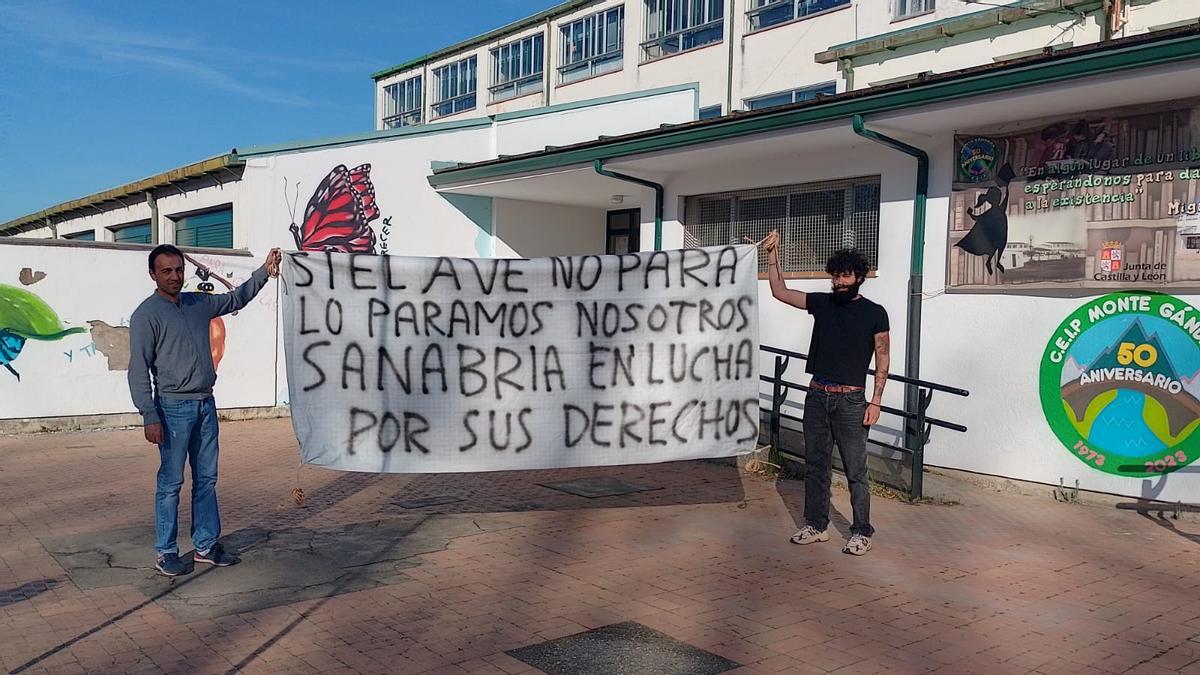 SI EL AVE NO PARA
LO PARAMOS NOSOTROS
SANABRIA EN LUCHA
POR SUS DERECHOS
"En algún lugar de un lib
esperándonos para da
a la existencia"
Migu
50
ANIVERSARIO
Junta de
Castilla y León
C.E.I.P MONTE GÁND
50
ANIVERSARIO
1973
2023
RECER
Y